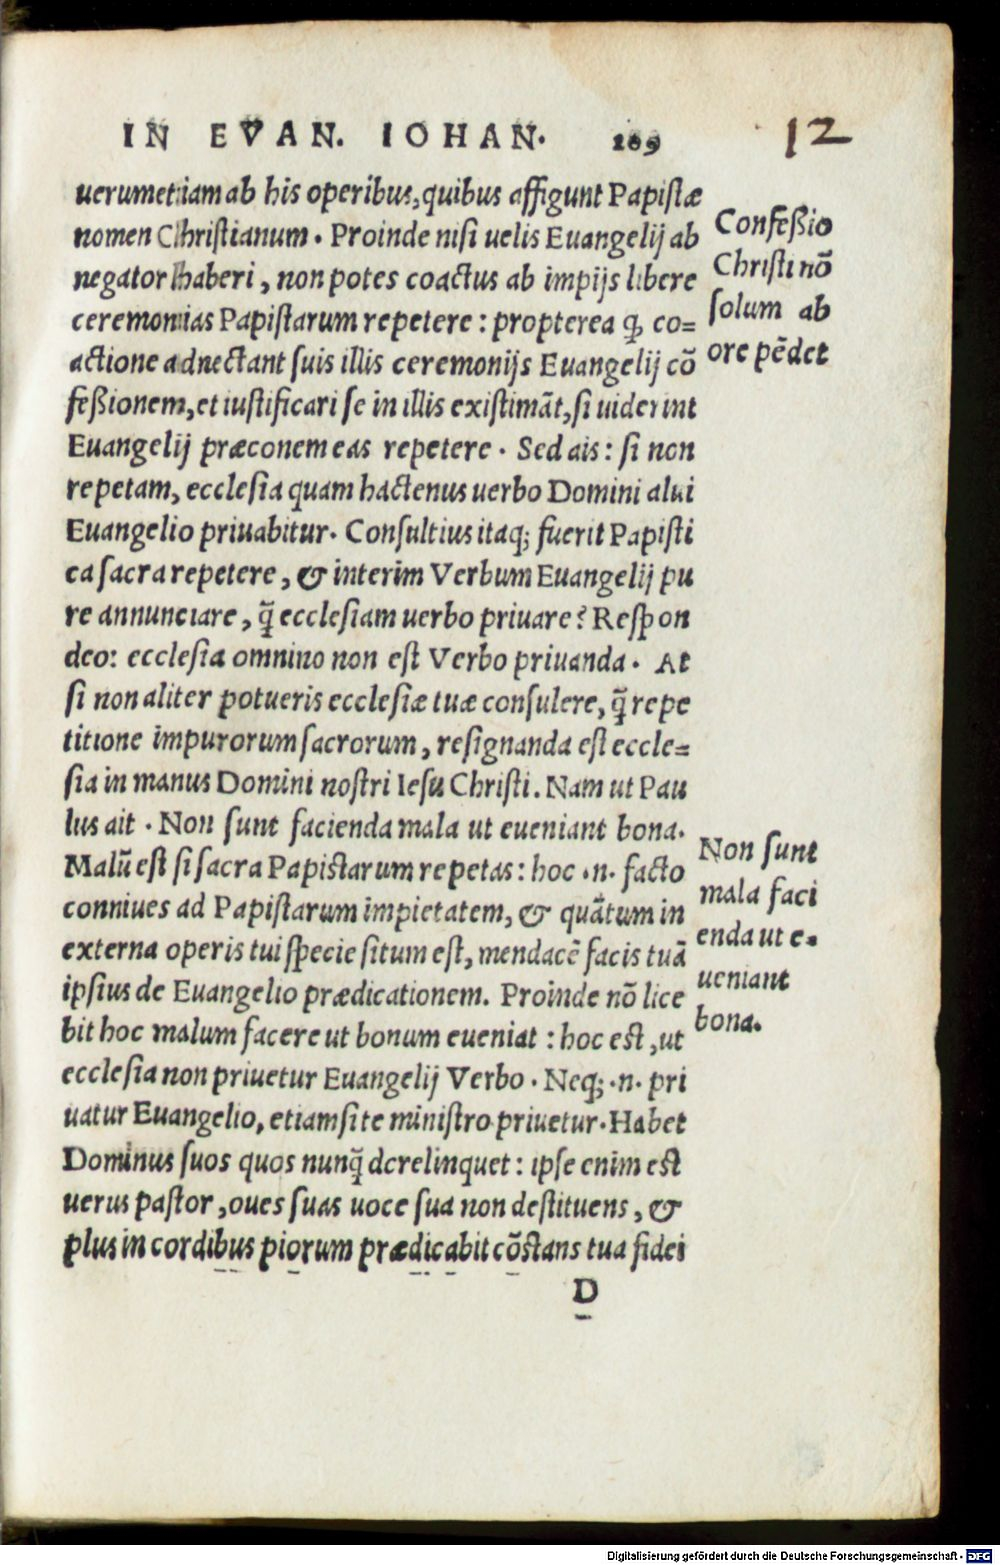 IN EVAN. IOHAN. 209 12
uerumetiam ab his operibus, quibus affigunt Papistæ
nomen Christianum. Proinde nisi uelis Euangelij ab
negator haberi, non potes coactus ab impijs libere
ceremonias Papistarum repetere: propterea ꝙ co=
actione adnectant suis illis ceremonijs Euangelij cō
feßionem, et iustificari se in illis existimāt, si uiderint
Euangelij præconem eas repetere. Sed ais: si non
repetam, ecclesia quam hactenus uerbo Domini alui
Euangelio priuabitur. Consultius itaq; fuerit Papisti
ca sacra repetere, & interim Verbum Euangelij pu
re annunciare, q̃ ecclesiam uerbo priuare? Respon
deo: ecclesia omnino non est Verbo priuanda. At
si non aliter potueris ecclesiæ tuæ consulere, q̃ repe
titione impurorum sacrorum, resignanda est eccle=
sia in manus Domini nostri Iesu Christi. Nam ut Pau
lus ait. Non sunt facienda mala ut eueniant bona.
Malū est si sacra Papistarum repetas: hoc .n. facto
conniues ad Papistarum impietatem, & quātum in
externa operis tui specie situm est, mendacē facis tuā
ipsius de Euangelio prædicationem. Proinde nō lice
bit hoc malum facere ut bonum eueniat: hoc est, ut
ecclesia non priuetur Euangelij Verbo. Neq; .n. pri
uatur Euangelio, etiamsi te ministro priuetur. Habet
Dominus suos quos nunq̃ derelinquet: ipse enim est
uerus pastor, oues suas uoce sua non destituens, &
plus in cordibus piorum prædicabit cōstans tua fidei
D
Confeßio
Christi nō
solum ab
ore pēdet
Non sunt
mala faci
enda ut e.
ueniant
bona.
Digitalisierung gefördert durch die Deutsche Forschungsgemeinschaft - DFG